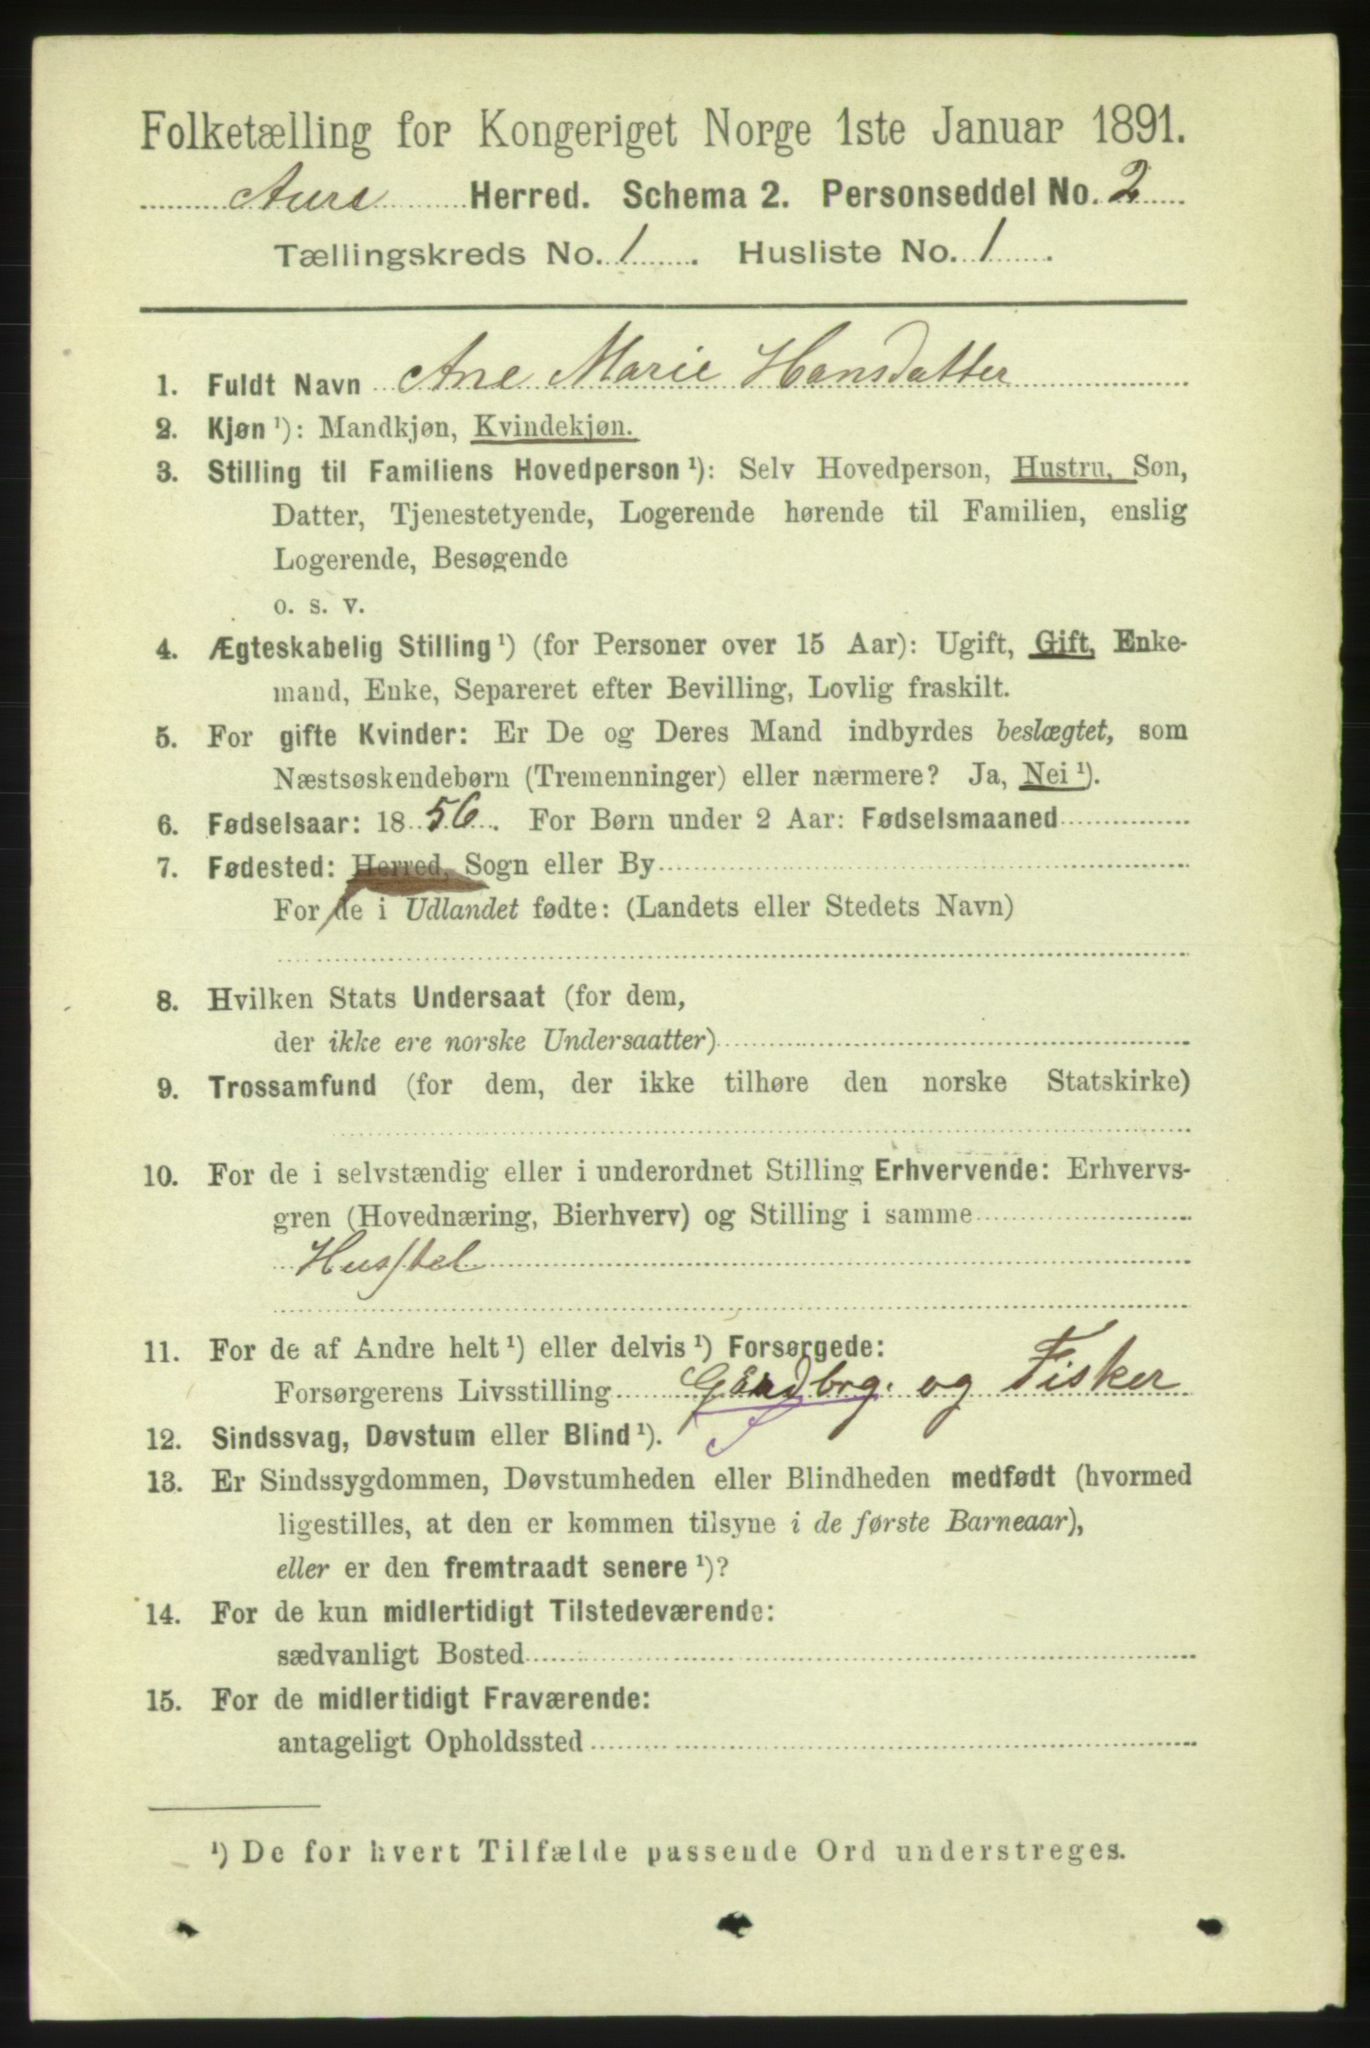 Folketælling for Kongeriget Norge 1ste Januar 1891.
Aure Herred. Schema 2. Personseddel No. 2
Tællingskreds No. 1. Husliste No. 1.
1. Fuldt Navn Ane Marie Hansdatter
2. Kjøn¹): Mandkjøn, Kvindekjøn.
3. Stilling til Familiens Hovedperson¹): Selv Hovedperson, Hustru, Søn,
Datter, Tjenestetyende, Logerende hørende til Familien, enslig
Logerende, Besøgende
o. s. v.
4. Ægteskabelig Stilling¹) (for Personer over 15 Aar): Ugift, Gift, Enke-
mand, Enke, Separeret efter Bevilling, Lovlig fraskilt.
5. For gifte Kvinder: Er De og Deres Mand indbyrdes beslægtet, som
Næstsøskendebørn (Tremenninger) eller nærmere? Ja, Nei¹).
6. Fødselsaar: 1856. For Børn under 2 Aar: Fødselsmaaned
7. Fødested: Herred, Sogn eller By
For de i Udlandet fødte: (Landets eller Stedets Navn)
8. Hvilken Stats Undersaat (for dem,
der ikke ere norske Undersaatter)
9. Trossamfund (for dem, der ikke tilhøre den norske Statskirke)
10. For de i selvstændig eller i underordnet Stilling Erhvervende: Erhvervs-
gren (Hovednæring, Bierhverv) og Stilling i samme
Husstel
11. For de af Andre helt¹) eller delvis¹) Forsørgede:
Forsørgerens Livsstilling Gårdbrg. og Fisker
12. Sindssvag, Døvstum eller Blind¹).
13. Er Sindssygdommen, Døvstumheden eller Blindheden medfødt (hvormed
ligestilles, at den er kommen tilsyne i de første Barneaar),
eller er den fremtraadt senere¹)?
14. For de kun midlertidigt Tilstedeværende:
sædvanligt Bosted
15. For de midlertidigt Fraværende:
antageligt Opholdssted
¹) De for hvert Tilfælde passende Ord understreges.